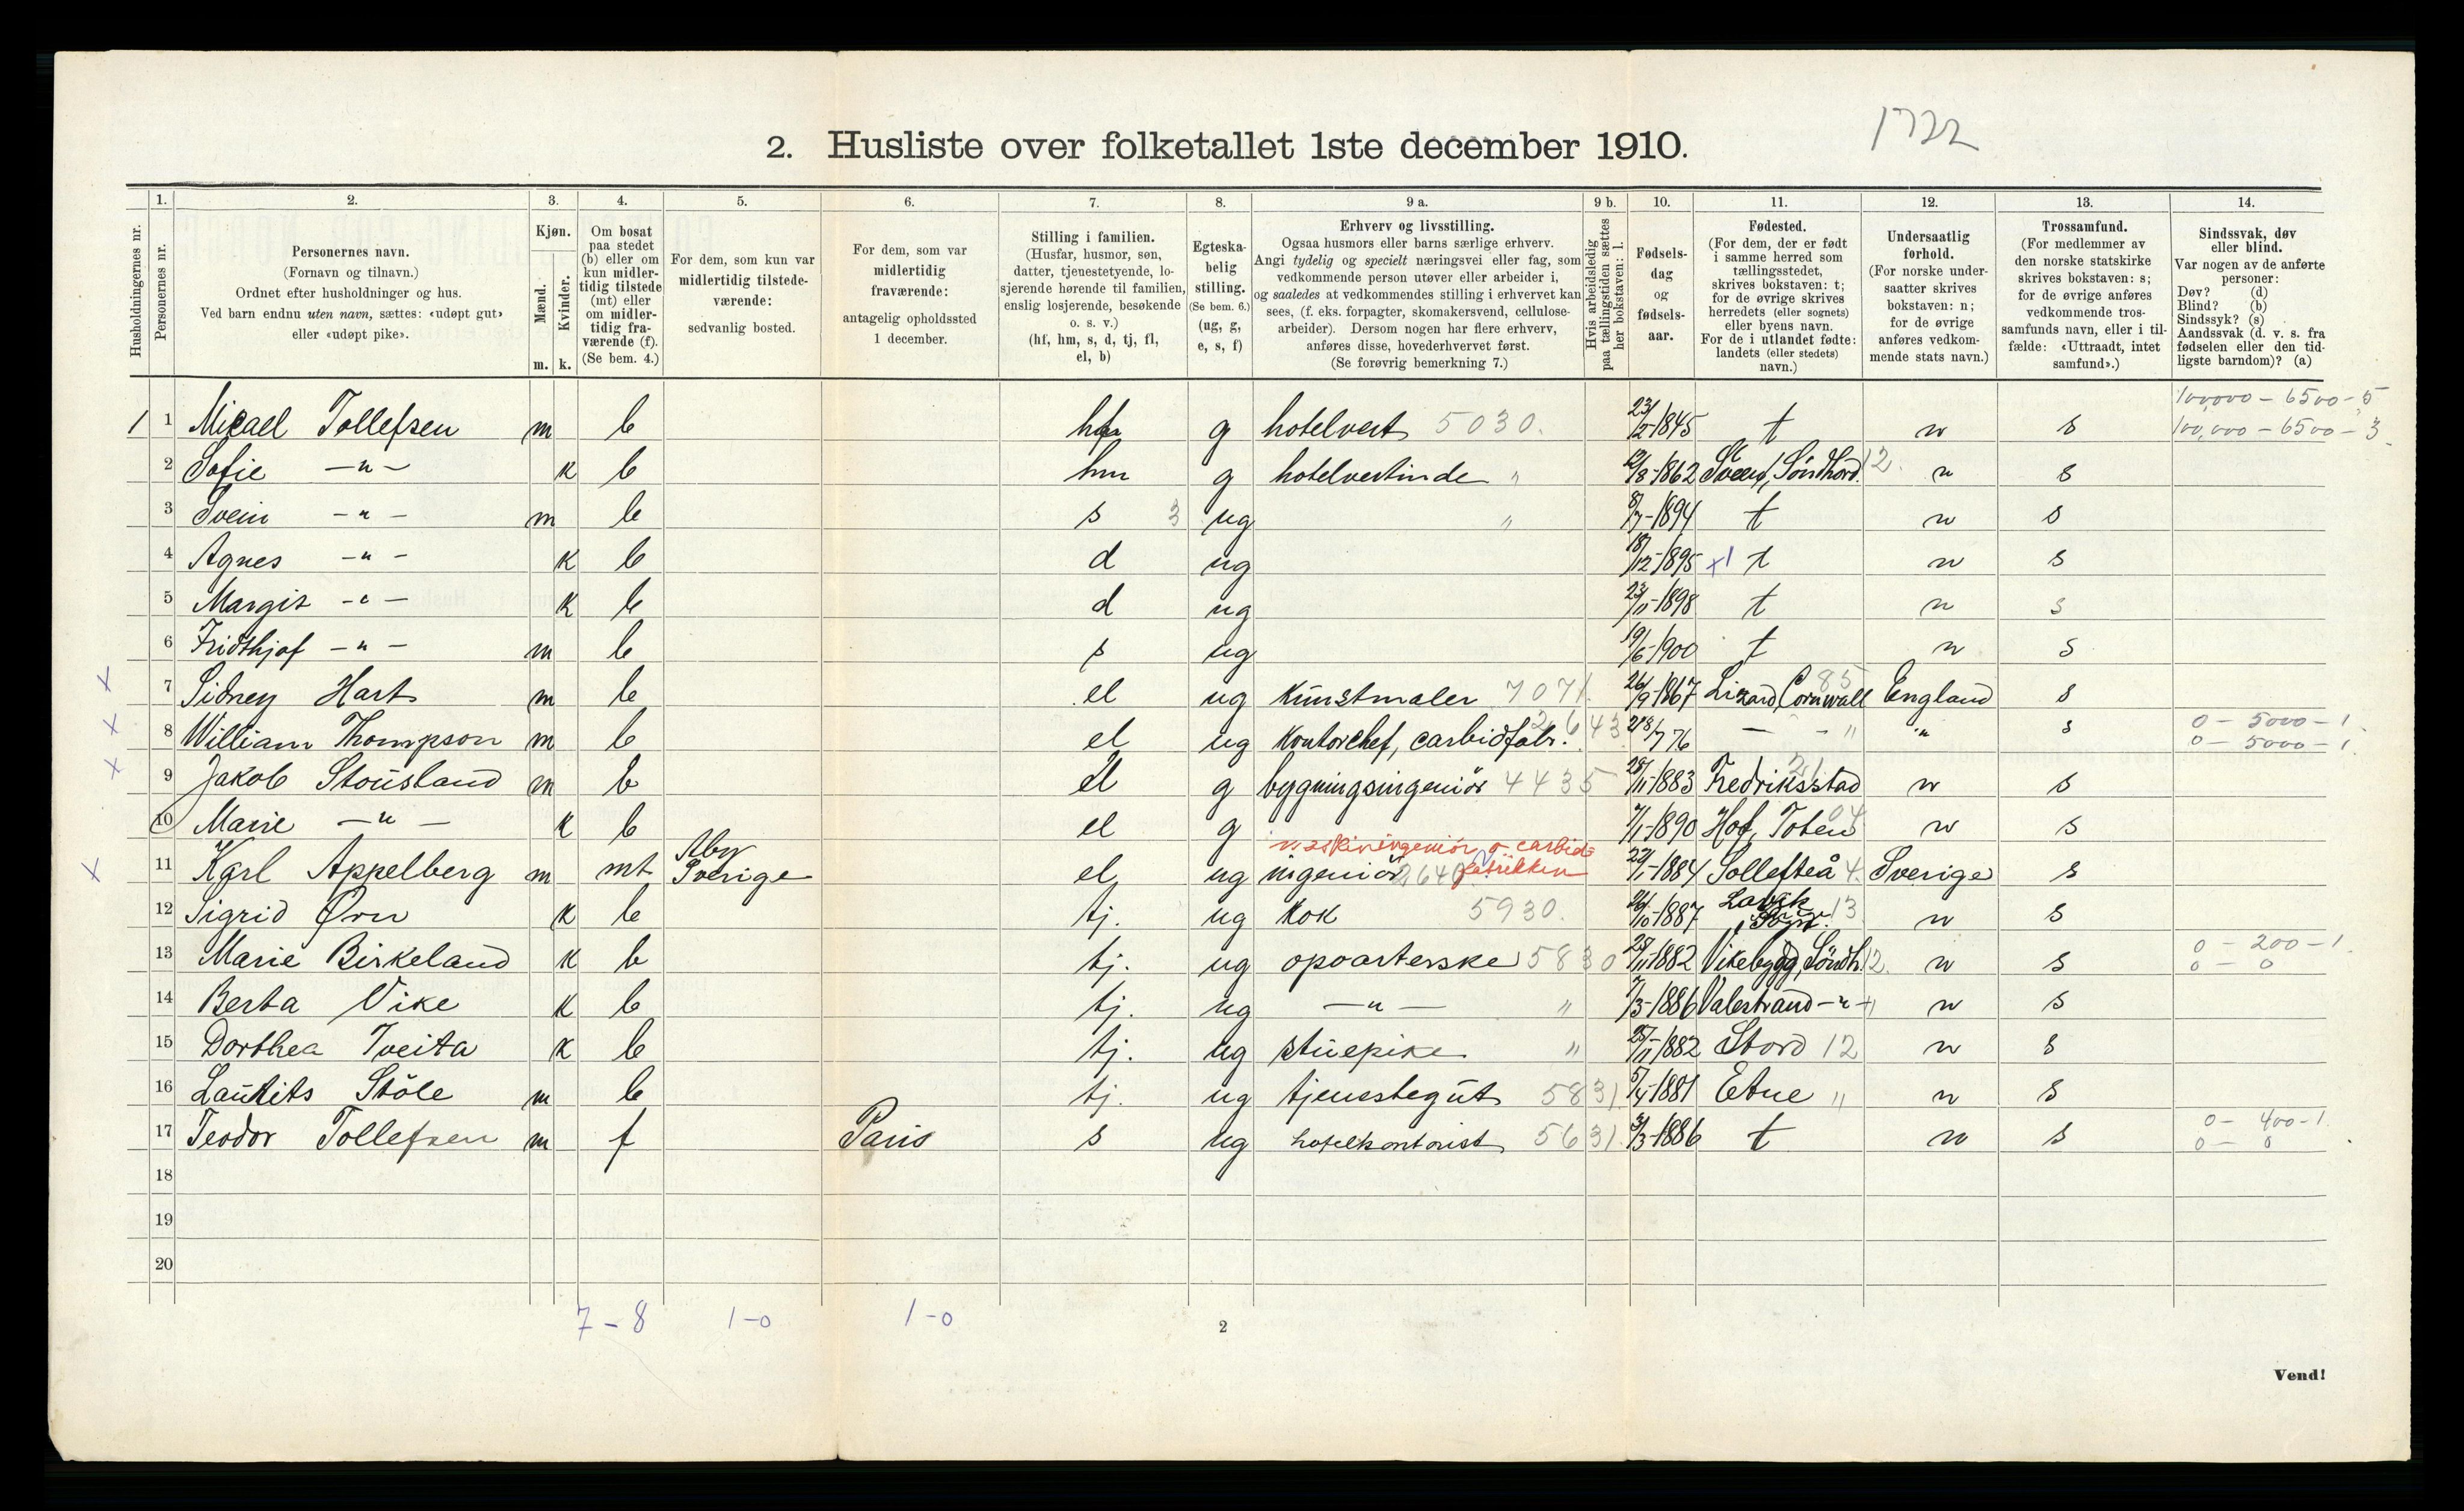 1722
2. Husliste over folketallet 1ste december 1910.
1. 2. 3. 4. 5. 6. 7. 8. 9 a. 9 b. 10. 11. 12. 13. 14.
Husholdningernes nr.
Personernes nr.
Personernes navn.
(Fornavn og tilnavn.)
Ordnet efter husholdninger og hus.
Ved barn endnu uten navn, sættes: «udøpt gut»
eller «udøpt pike».
Kjøn.
Mænd.
Kvinder.
m. k.
Om bosat
paa stedet
(b) eller om
kun midler-
tidig tilstede
(mt) eller
om midler-
tidig fra-
værende (f).
(Se bem. 4.)
For dem, som kun var
midlertidig tilstede-
værende:
sedvanlig bosted.
For dem, som var
midlertidig
fraværende:
antagelig opholdssted
1 december.
Stilling i familien.
(Husfar, husmor, søn,
datter, tjenestetyende, lo-
sjerende hørende til familien,
enslig losjerende, besøkende
o. s. v.)
(hf, hm, s, d, tj, fl,
el, b)
Egteska-
belig
stilling.
(Se bem. 6.)
(ug, g,
e, s, f)
Erhverv og livsstilling.
Ogsaa husmors eller barns særlige erhverv.
Angi tydelig og specielt næringsvei eller fag, som
vedkommende person utøver eller arbeider i,
og saaledes at vedkommendes stilling i erhvervet kan
sees, (f. eks. forpagter, skomakersvend, cellulose-
arbeider). Dersom nogen har flere erhverv,
anføres disse, hovederhvervet først.
(Se forøvrig bemerkning 7.)
Hvis arbeidsledig
paa tællingstiden sættes
her bokstaven: l.
Fødsels-
dag
og
fødsels-
aar.
Fødested.
(For dem, der er født
i samme herred som
tællingsstedet,
skrives bokstaven: t;
for de øvrige skrives
herredets (eller sognets)
eller byens navn.
For de i utlandet fødte:
landets (eller stedets)
navn.)
Undersaatlig
forhold.
(For norske under-
saatter skrives
bokstaven: n;
for de øvrige
anføres vedkom-
mende stats navn.)
Trossamfund.
(For medlemmer av
den norske statskirke
skrives bokstaven: s;
for de øvrige anføres
vedkommende tros-
samfunds navn, eller i til-
fælde: «Uttraadt, intet
samfund».)
Sindssvak, døv
eller blind.
Var nogen av de anførte
personer:
Døv? (d)
Blind? (b)
Sindssyk? (s)
Aandssvak (d. v. s. fra
fødselen eller den tid-
ligste barndom)? (a)
100,000 - 6500 - 5
1 1 Micael Tollefsen m b g hotelvert 5030. 1845 t n s 100,000 - 6500 - 3
2 Sofie -"- k b hm g hotelvertinde " 1862 12. n s
3 Svein -"- m b s 3 ug " 8/7-1894 t n s
4 Agnes -"- k b d ug 18/12-1895 x1 t n s
5 Margit -"- k b d ug 23/11-1898 t n s
6 Fridthjof -"- m b s ug 19/6-1900 t n s
x 7 Sidney Hart m b el ug Kunstmaler 7071. 26/9-1867 Lizard, Cornwall 85 England s
x 8 William Thompson m b el ug Kontorchef, carbidfabr. 2643 28/7 76 - - " " s 0 - 5000 - 1
0 - 5000 - 1.
x 9 Jakob Stousland m b el g bygningsingeniör 4435 28/11-1883 Fredriksstad 21 n s
10 Marie -"- k b el g 7/1-1890 Hof, Toten 04 n s
maskiningeniör carbid-
fabrikken
x 11 Karl Appelberg m mt Sverige el ug ingeniör 2640 1884 Sollefteå 4. Sverige s
12 Sigrid Ørn k b tj. ug kok 5930. 26/10-1887 Lavik Sogn. 13 n s
13 Marie Birkeland k b tj. ug opvarterske 5830 25/11-1882 Vikebygd, Söndh. 12. n s 0 - 200 - 1.
0 - 0
14 Berta Vike k b tj. ug -"- " 7/3-1886 Valestrand -"- " n s
15 Dorthea Tveita k b tj. ug stuepike " 25/11-1882 Stord 12 n s
16 Lauritts Stöle m b tj. ug tjenestegut 5831. 5/4-1881 Etne " n s
17 Teodor Tollefsen m f Paris s ug hotelkontorist 5631. 1886 t n s 0 - 400 - 1.
0 - 0
18
19
20
7 - 8 1 - 0 1 - 0
2
Vend!